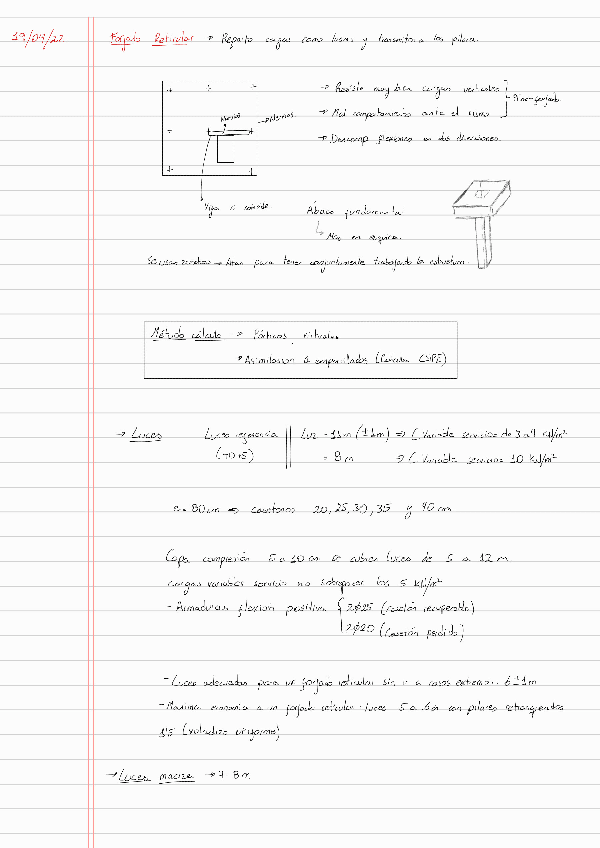 19/04/22
Forjado Reticular → Reparto cargas como losas y transmitir a los pilares.
→ Resiste muy bien cargas verticales
→ Mal comportamiento ante el sismo
→ Descomp flexiones en dos direcciones.
Ábaco fundamental
No en esquina.
para tener conjuntamente trabajando la estructura.
Método cálculo → Pórticos virtuales
• Asimilación a emparrillados
→ Luces
Luces referencia
Luz = 11m (±1m) ⇒ C. Variable servicio de 3 a 4 kN/m²
= 8m ⇒ C. Variable servicio 10 kN/m²
e = 80 cm ⇒ casetones 20, 25, 30, 35 y 40 cm
Capa compresión 5 a 10 cm se cubren luces de 5 a 12 m
cargas variables servicio no sobrepasar los 5 kN/m²
- Armaduras flexión positiva
2Ø25 (casetón recuperable)
2Ø20 (casetón perdido)
- Luces adecuadas para un forjado reticular sin ir a casos extremos: 6±1m
- Máxima economía a un forjado reticular: luces 5 a 6m con pilares retranqueados
1'5 (voladizo uniforme)
→ Luces maciza → 7 8m